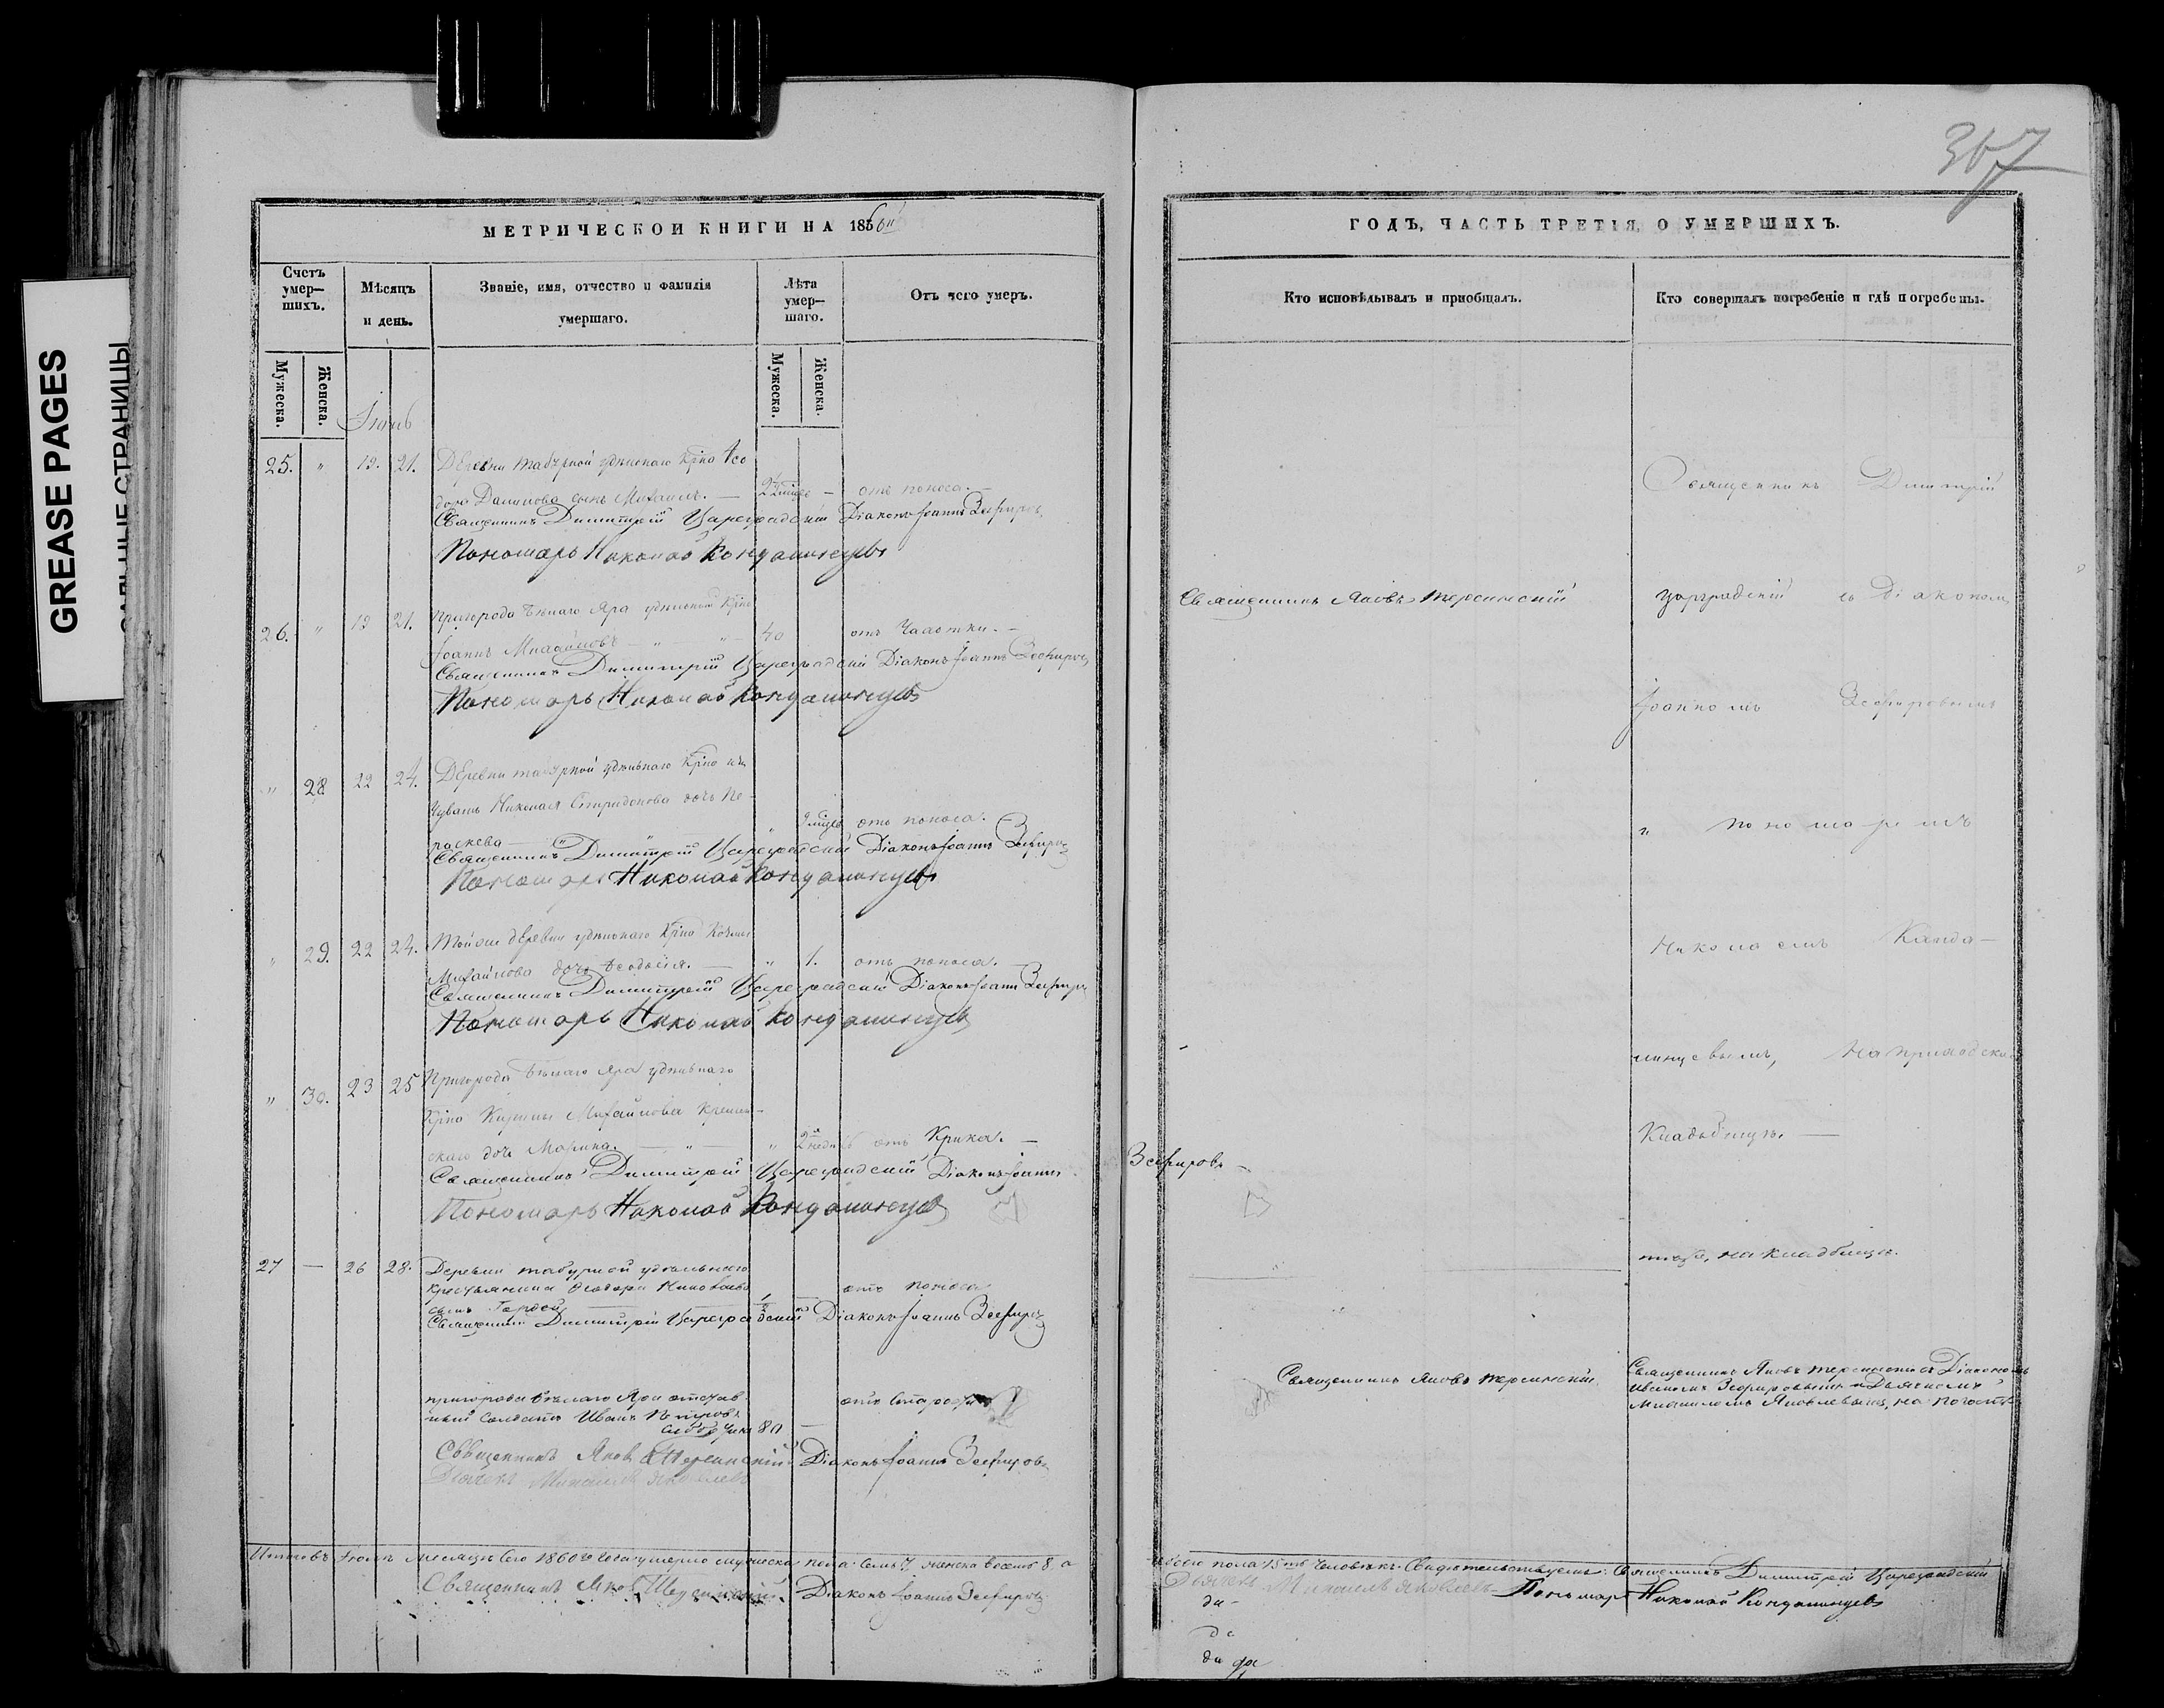 GREASE PAGES
САЛЬНЫЕ СТРАНИЦЫ
367
МЕТРИЧЕСКОИ КНИГИ НА 1860
ГОДЪ, ЧАСТЬ ТРЕТІЯ, О УМЕРШИХЪ.
Счетъ умер—шихъ.
Мѣсяцъ и день.
Званіе, имя, отчество и фамилія умершаго.
Лѣта умер—шаго.
Отъ чего умеръ.
Кто исповѣдывалъ и приобщалъ.
Кто совершалъ погребеніе и гдѣ погребены.
Мужеска.
Женска.
Мужеска.
Женска.
25. " 19. 21. Деревни Табурной удѣльнаго Крно Ѳео
дора Данилова сынъ Михаилъ. — отъ поноса. —
Священникъ Димитрій Цареградскій Діаконъ Іоаннъ Зефировъ
Пономарь Николай Кондаминцевъ
26. " 19 21. Пригорода Бѣлаго Яра удѣльной Крно
Іоаннъ Михайловъ — " " — 40 отъ Чахотки. —
Священникъ Димитрій Цареградскій Діаконъ Іоаннъ Зефировъ
Пономарь Николай Кондаминцевъ
" 28 22 24. Деревни Табурной удѣльнаго Крно изъ
Чувашъ Николая Спиридонова дочь Па-
раскева — " " 9 мцевъ отъ поноса.
Священникъ Димитрій Цареградскій Діаконъ Іоаннъ Зефировъ
Пономарь Николай Кондаминцевъ
" 29. 22 24. Той же деревни удѣльнаго Крно
Михайлова дочь Ѳеодосія. — " 1. отъ поноса. —
Священникъ Димитрій Цареградскій Діаконъ Іоаннъ Зефировъ
Пономарь Николай Кондаминцевъ
" 30. 23 25 Пригорода Бѣлаго Яра удѣльнаго
Крно Михайлова
дочь Марина. — " — " 2 недѣль отъ Крика. —
Священникъ Димитрій Цареградскій Діаконъ Іоаннъ Зефировъ —
Пономарь Николай Кондаминцевъ
27 — 26 28. Деревни Табурной удѣльнаго
крестьянина Ѳеодора
сынъ Гордей — 1 — отъ поноса
Священникъ Димитрій Цареградскій Діаконъ Іоаннъ Зефировъ
пригорода Бѣлаго Яра отстав-
ный солдатъ Иванъ Петровъ
80 — отъ Старости
Священникъ Яковъ Терсинскій Діаконъ Іоаннъ Зефировъ
Дьячекъ Михаилъ Яковлевъ
Священникъ Яковъ Терсинскій
Священникъ Димитрій
Цареградскій съ Діакономъ
Іоанномъ Зефировымъ
и пономаремъ
Николаемъ Канда—
минцевымъ, на приходском
Кладбищѣ. —
тѣже, на кладбищѣ.
Священникъ Яковъ Терсинскій
Священникъ Яковъ Терсинскій съ Діакономъ
Иваномъ Зефировымъ и Дьячкомъ
Михаиломъ Яковлевымъ, на погостѣ
Итого въ мѣсяцѣ сего 1860го года умерло мужеска пола семь 7, женска восемь 8, а
обоего пола 15ть человѣкъ. Свидѣтельствуемъ: Священникъ Димитрій Цареградскій
Священникъ Яковъ Терсинскій Діаконъ Іоаннъ Зефировъ
Дьячекъ Михаилъ Яковлевъ Пономарь Николай Кондаминцевъ